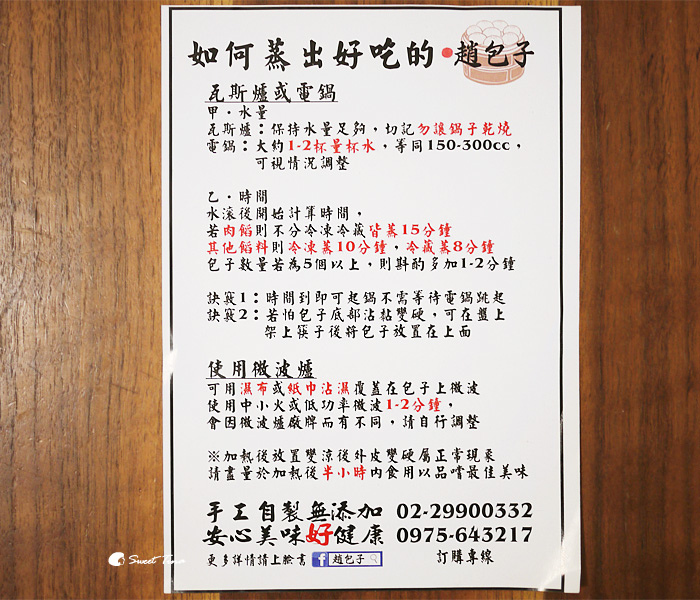 如何蒸出好吃的•趙包子
瓦斯爐或電鍋
甲．水量
瓦斯爐：保持水量足夠，切記勿讓鍋子乾燒
電鍋：大約1-2杯量杯水，等同150-300cc，
可視情況調整
乙．時間
水滾後開始計算時間，
若肉餡則不分冷凍冷藏皆蒸15分鐘
其他餡料則冷凍蒸10分鐘，冷藏蒸8分鐘
包子數量若為5個以上，則斟酌多加1-2分鐘
訣竅1：時間到即可起鍋不需等待電鍋跳起
訣竅2：若怕包子底部沾黏變硬，可在盤上
架上筷子後將包子放置在上面
使用微波爐
可用濕布或紙巾沾濕覆蓋在包子上微波
使用中小火或低功率微波1-2分鐘，
會因微波爐廠牌而有不同，請自行調整
※加熱後放置變涼後外皮變硬屬正常現象
請盡量於加熱後半小時內食用以品嚐最佳美味
手工自製無添加 02-29900332
安心美味好健康 0975-643217
更多詳情請上臉書 f 趙包子 訂購專線
Sweet Time